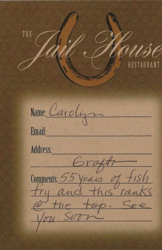 THE
Jail House
RESTAURANT
Name: Carolyn
Email:
Address:
Grafton
Comments: 55 years of fish
fry and this ranks
@ the top. See
you soon